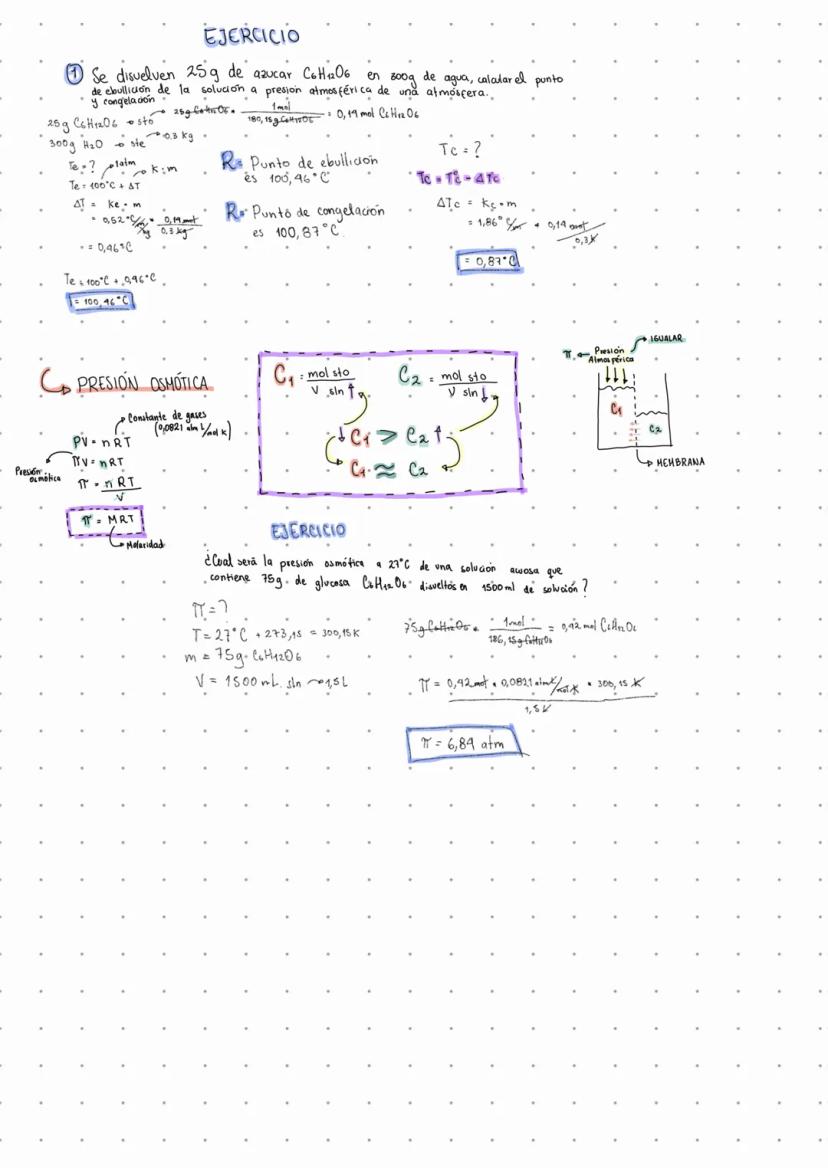 EJERCICIO
① Se disuelven 25g de azucar C6H12O6 en 300g de agua, calcular el punto
de ebullición de la solución a presion atmosférica de una atmósfera.
y congelación
25g C6H12O6 → sto → 25g C6H12O6 • 1mol / 180,15g C6H12O6 = 0,14 mol C6H12O6
300g H2O → ste → 0.3 kg
Te = ? 1atm K : m
Te = 100°C + ΔT
ΔT = Ke • m
= 0,52 °C/m/kg • 0,14 mol / 0.3 kg
= 0,46°C
Te = 100°C + 0,46°C
= 100,46°C
R= Punto de ebullición
es 100,46°C
R= Punto de congelación
es 100,87°C.
Tc = ?
Tc = T°c - ΔTc
ΔTc = Kc • m
= 1,86° C/m • 0,14 mol / 0,3 k
= 0,87°C
PRESIÓN OSMÓTICA
Constante de gases
(0,0821 atm L/mol K)
PV = nRT
πV = nRT
Presión
osmótica
π = nRT / V
π = MRT
Molaridad
C1 = mol sto / V sln ↑
C2 = mol sto / V sln ↓
↓ C1 > C2 ↑
C1 ≈ C2
π ← Presión
Atmosférica
IGUALAR
C1
C2
MEMBRANA
EJERCICIO
¿Cual será la presión osmótica a 27°C de una solución acuosa que
contiene 75g. de glucosa C6H12O6 disueltos en 1500ml de solución?
π = ?
T = 27°C + 273,15 = 300,15K
m = 75g. C6H12O6
V = 1500 mL. sln → 1,5L
75g C6H12O6 • 1mol / 186,15g C6H12O6 = 0,42 mol C6H12O6
π = 0,42 mol • 0,0821 atm L/mol K • 300,15 K / 1,5 L
π = 6,84 atm